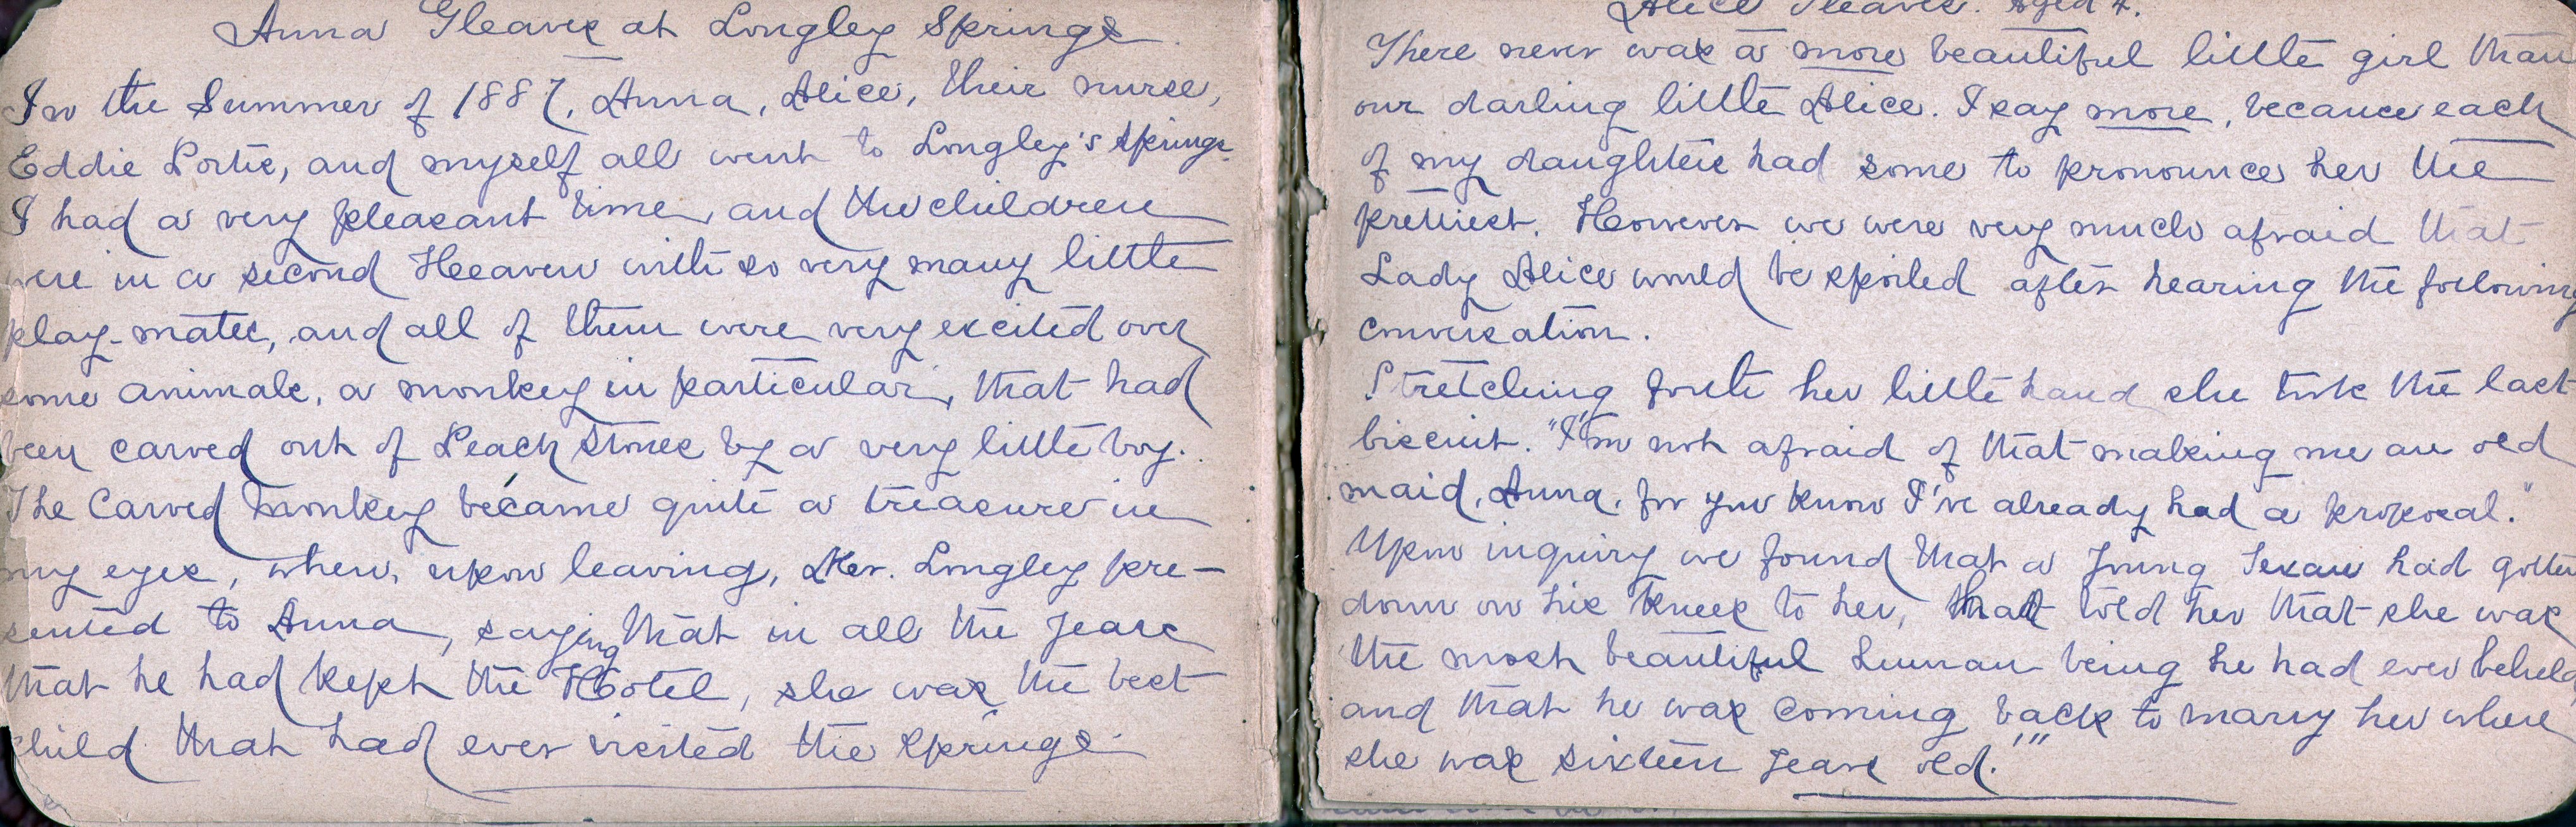 Anna Gleaves at Longley Springs
In the Summer of 1887, Anna, Alice, their nurse,
Eddie Portis, and myself all went to Longley's Springs
I had a very pleasant time, and the children
were in a second Heeaven with so very many little
play-mates, and all of them were very excited over
some animals, a monkey in particular, that had
been carved out of Peach Stones by a very little boy.
The Carved monkey became quite a treasure in
my eyes, when, upon leaving, Mr. Longley pre-
sented to Anna, saying that in all the years
that he had kept the Hotel, she was the best
child that had ever visited the Springs.
Alice Gleaves. Aged 4.
There never was a more beautiful little girl than
our darling little Alice. I say more, because each
of my daughters had some to pronounce her the
prettiest. However we were very much afraid that
Lady Alice would be spoiled after hearing the following
conversation.
Stretching forth her little hand she took the last
biscuit. "I'm not afraid of that making me an old
maid, Anna, for you know I've already had a proposal."
Upon inquiry we found that a young Texan had gotten
down on his knees to her, told her that she was
the most beautiful human being he had ever beheld
and that he was coming back to marry her when
she was sixteen years old.'"